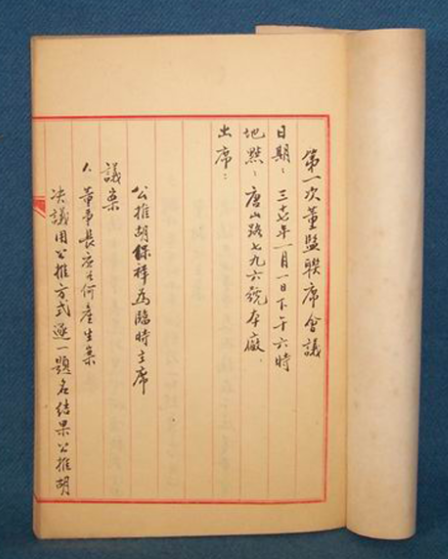 第一次董監聯席會議
日期：三十七年一月一日下午六時
地點：唐山路七九六號本廠
出席：
公推胡保祥為臨時主席
議案
1、董事長應如何產生案
決議用公推方式逐一題名結果公推胡